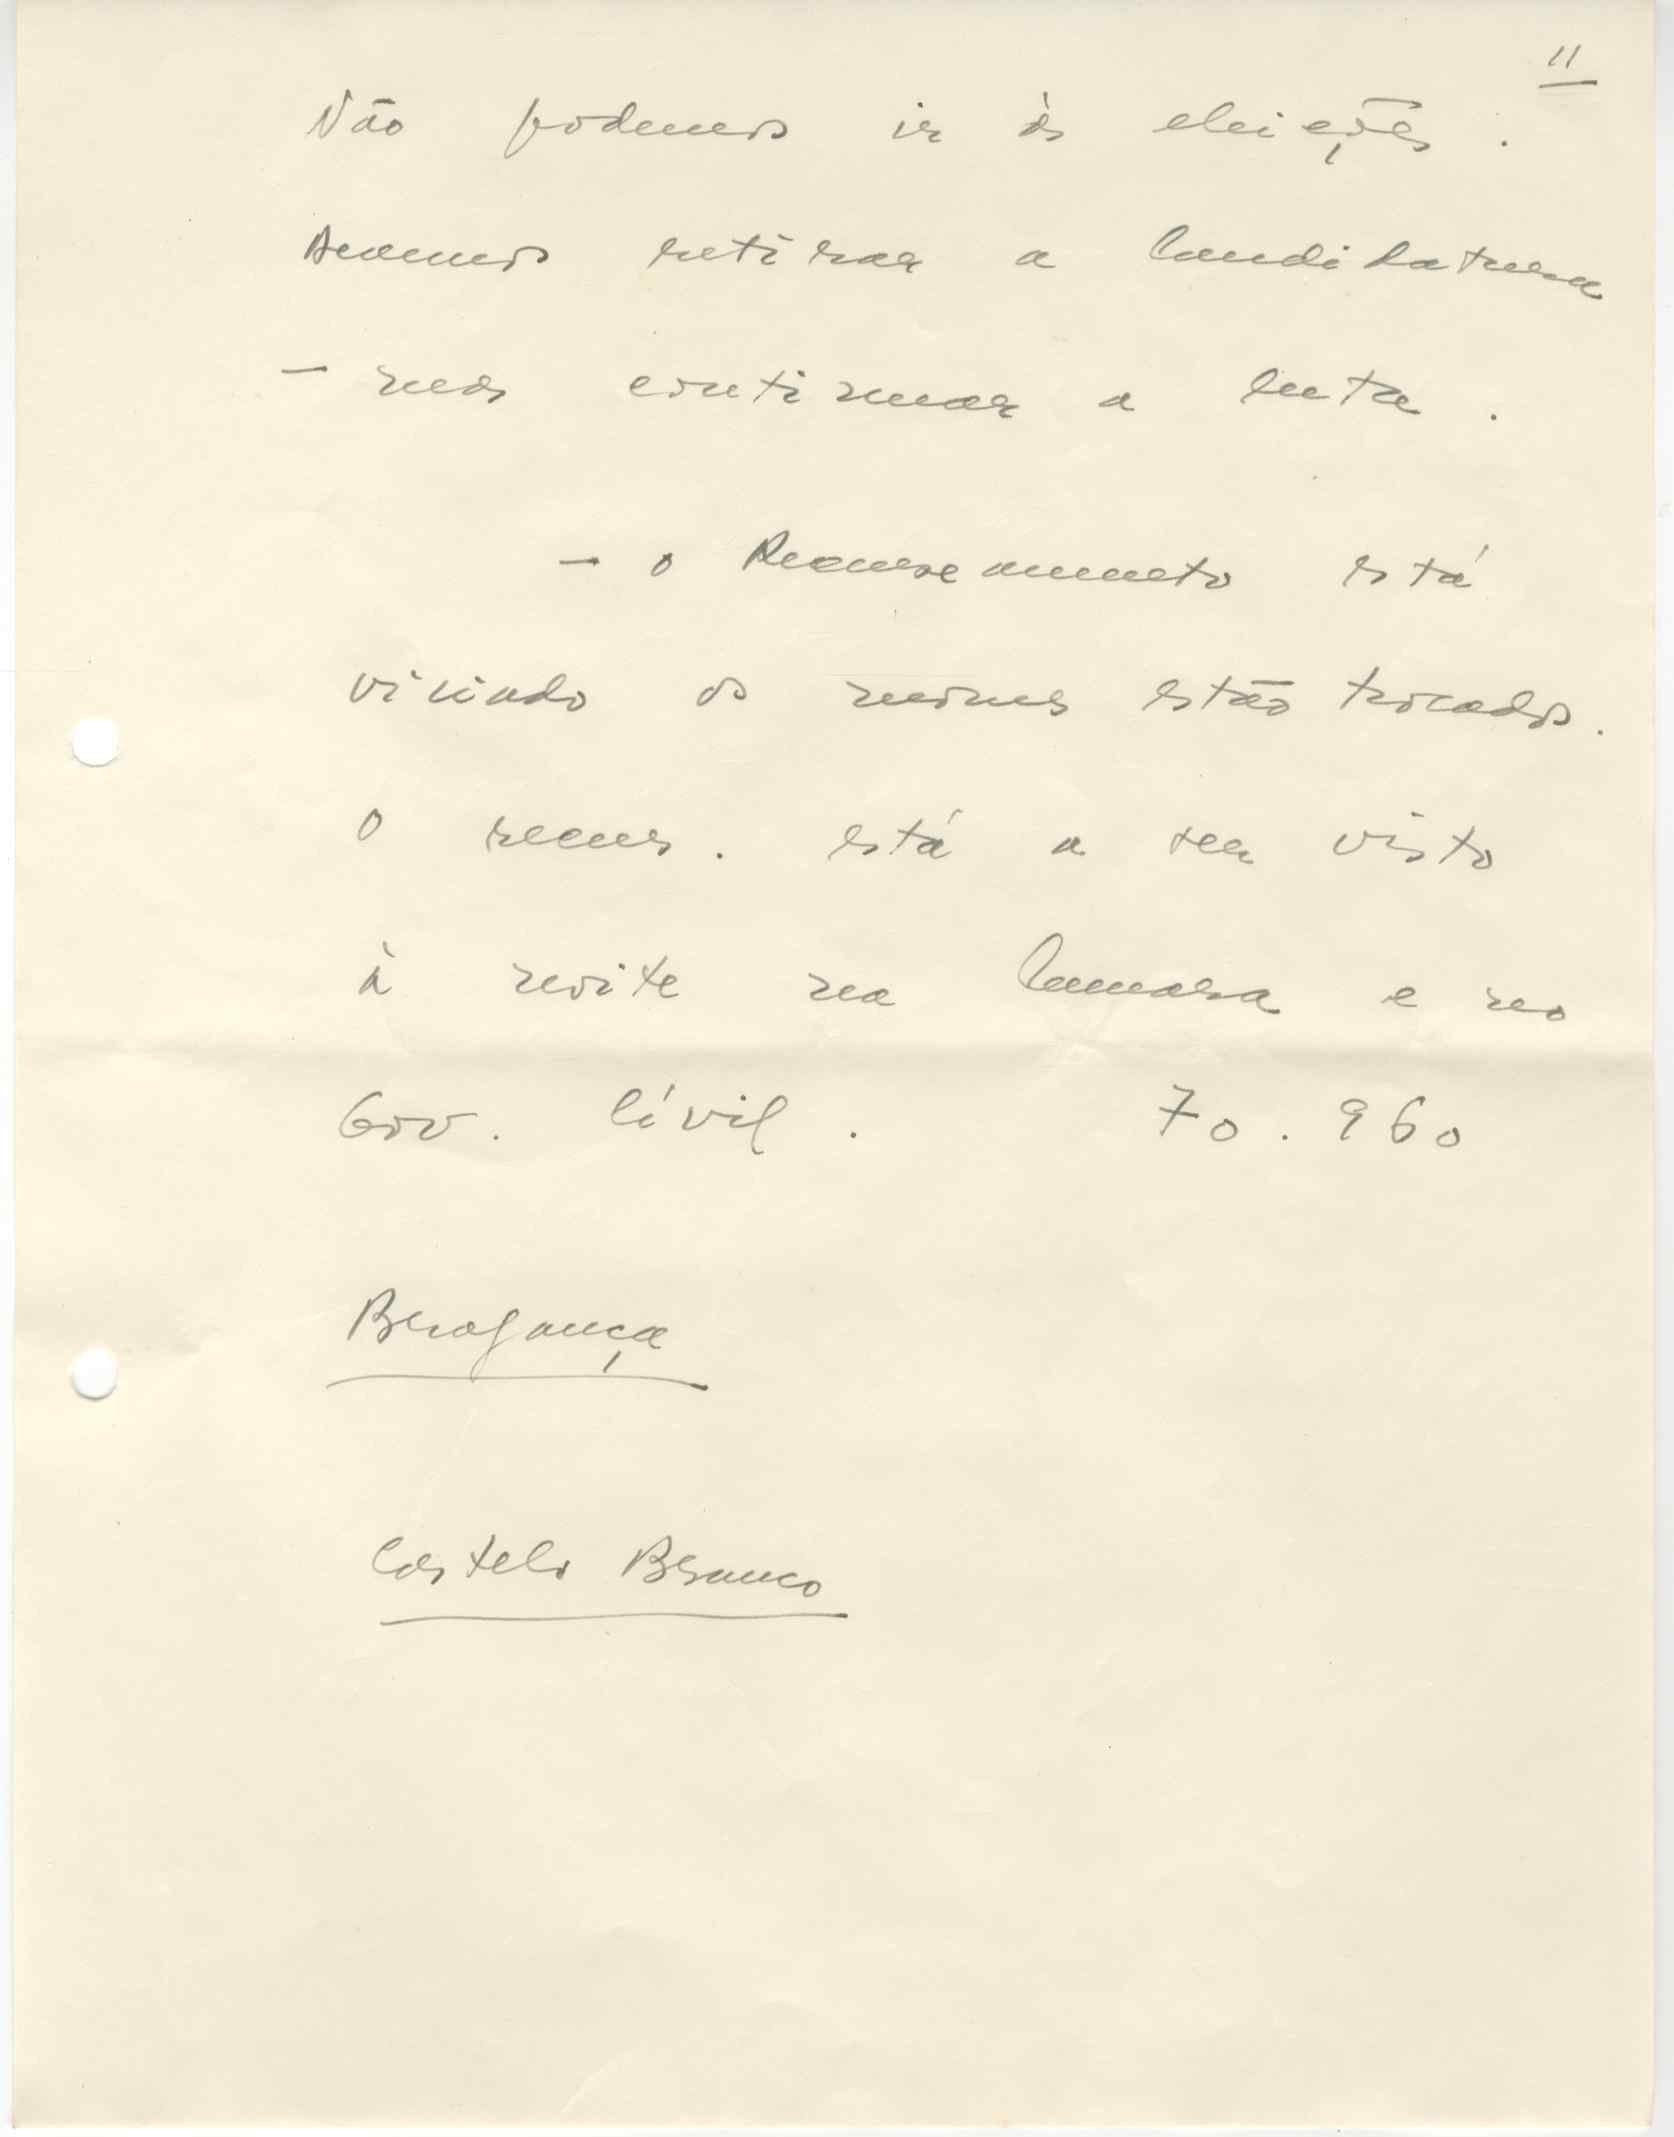 11
Não podemos ir às eleições.
retirar a Candidatura
- mas continuar a luta.
- o Recenseamento está
viciado os nomes estão trocados.
O recens. está a ser visto
à noite na Camara e no
Gov. Cívil. 70.960
Bragança
Castelo Branco